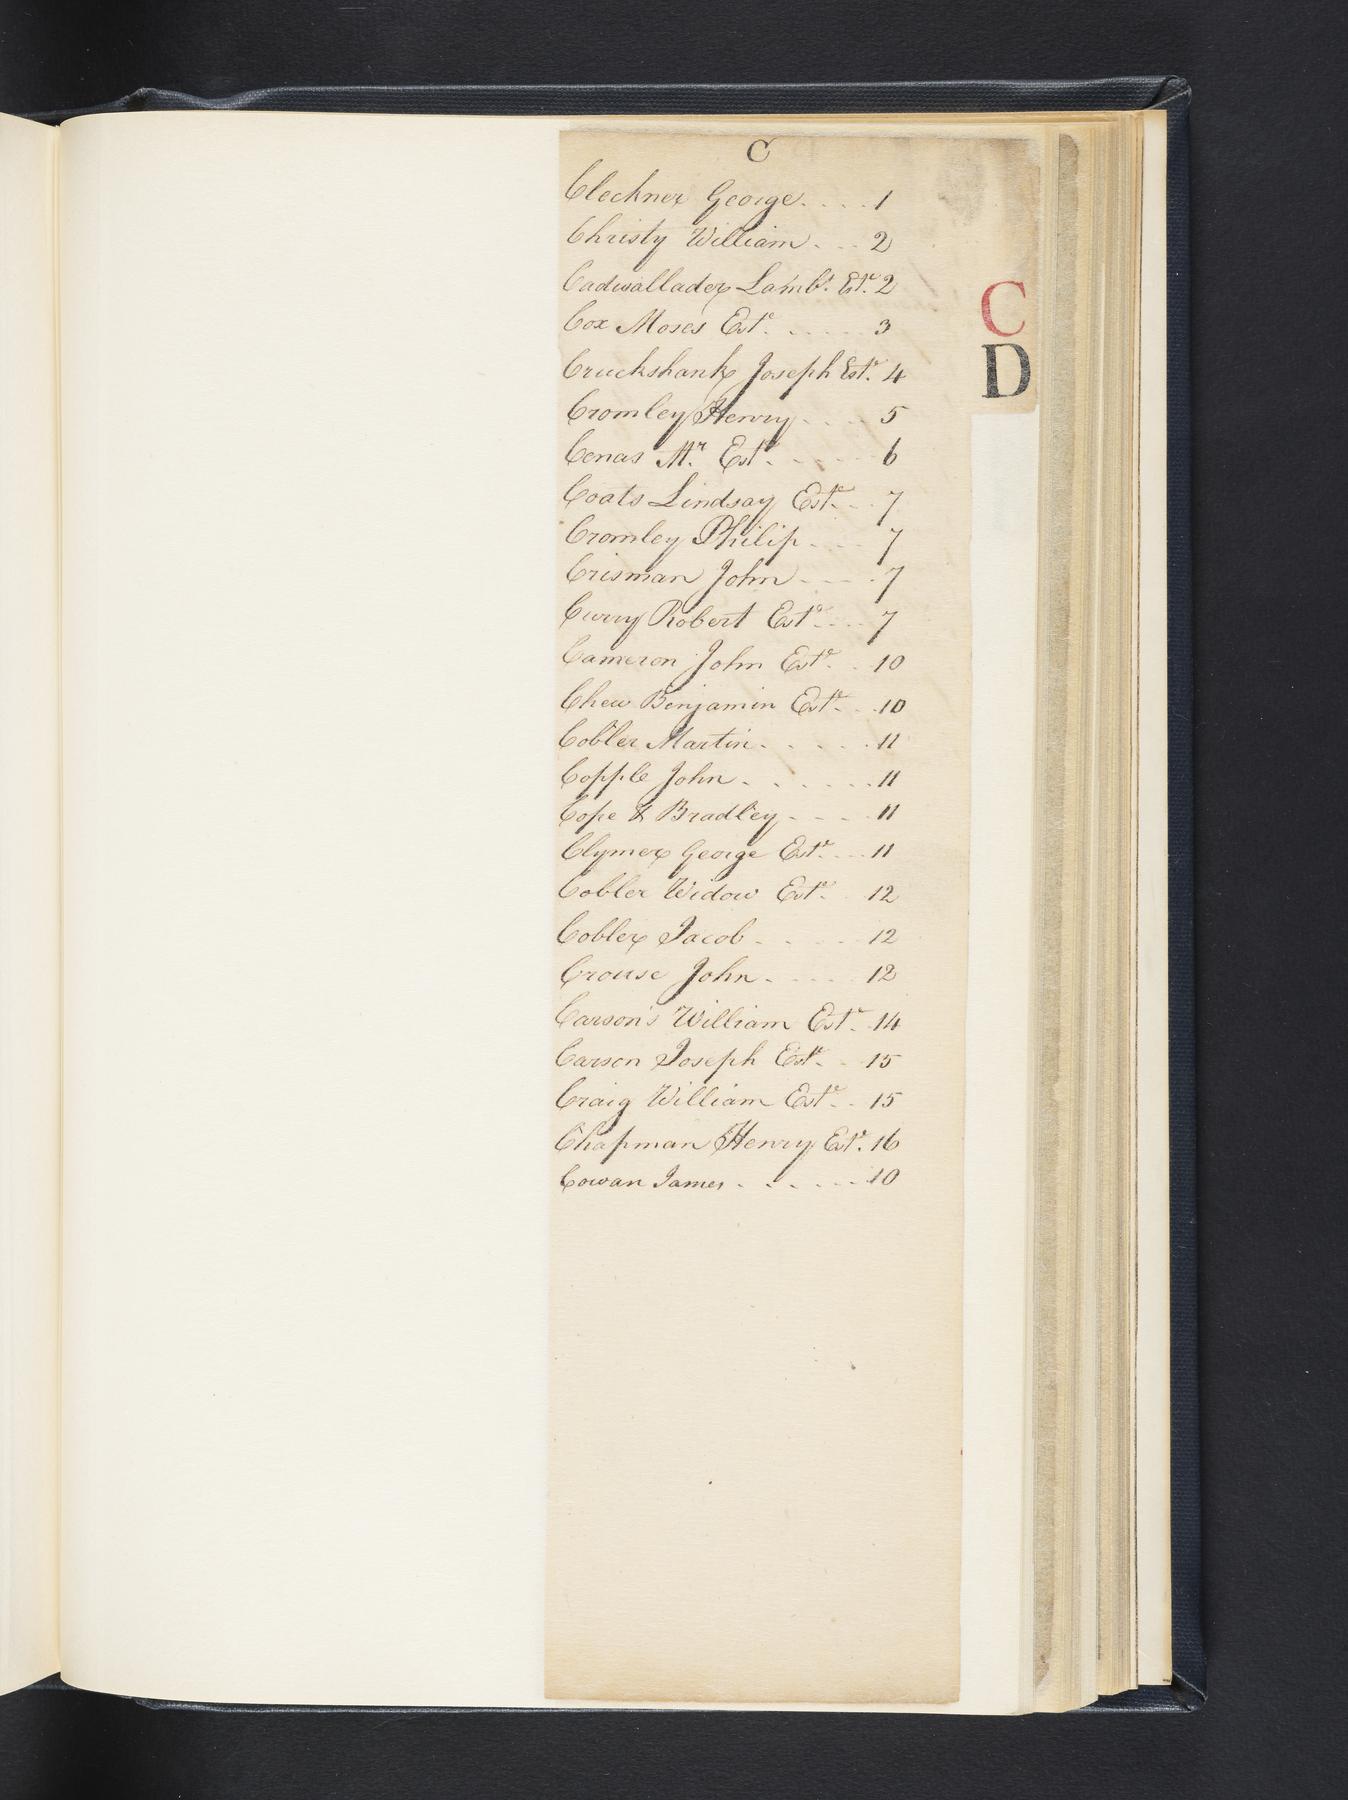 C
Cleckner George. . . . 1
Christy William. . . 2
Cadwallader Lambt. Este. 2
Cox Moses Este. . . . . 3
Cruckshank Joseph Este. 4
Cromley Henry. . . . 5
Cenas Mr. Este. . . . . 6
Coats Lindsay Este. . . 7
Cromley Philip . . . . 7
Crisman John . . . . 7
Curry Robert Este. . . . 7
Cameron John Este. . 10
Chew Benjamin Este. . . 10
Cobler Martin. . . . . 11
Copple John . . . . . . 11
Cope & Bradley . . . . 11
Clymer George Este. . . 11
Cobler Widow Este. . 12
Cobler Jacob . . . . 12
Crouse John. . . . . 12
Carson's William Este. . 14
Carson Joseph Este. . 15
Craig William Este. . . 15
Chapman Henry Este. 16
Cowan James . . . . . . 10
C
D